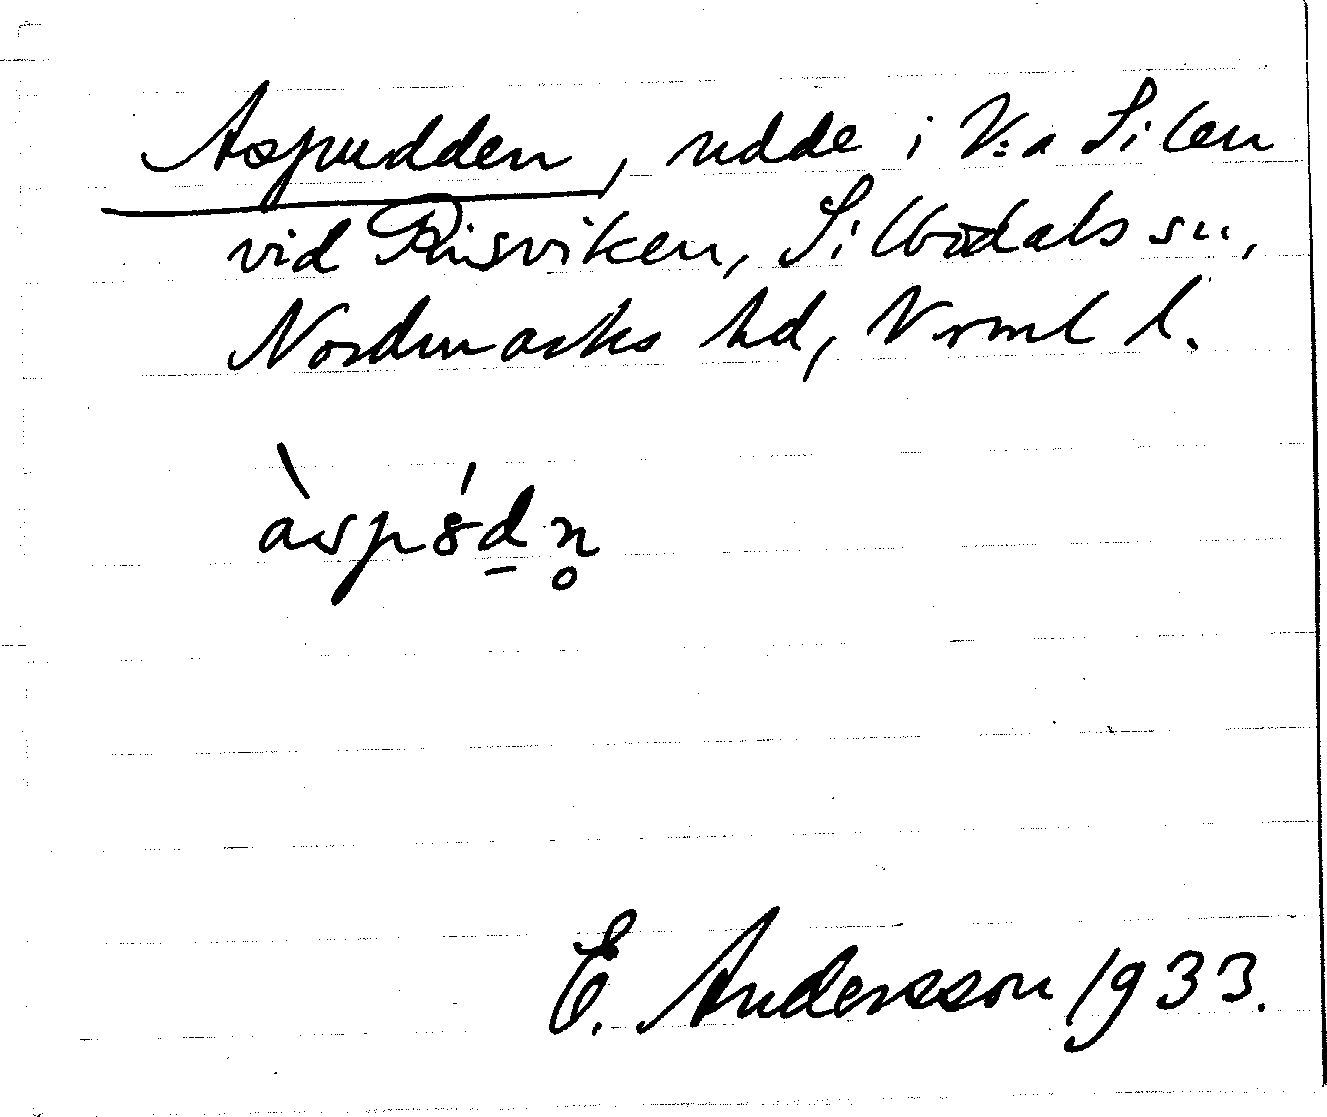 Aspudden, udde i V:a Silen
vid Risviken, Silbodals sn,
Nordmarks hd, Vrml l.
àspȣ́d̲n̥
E. Andersson 1933.